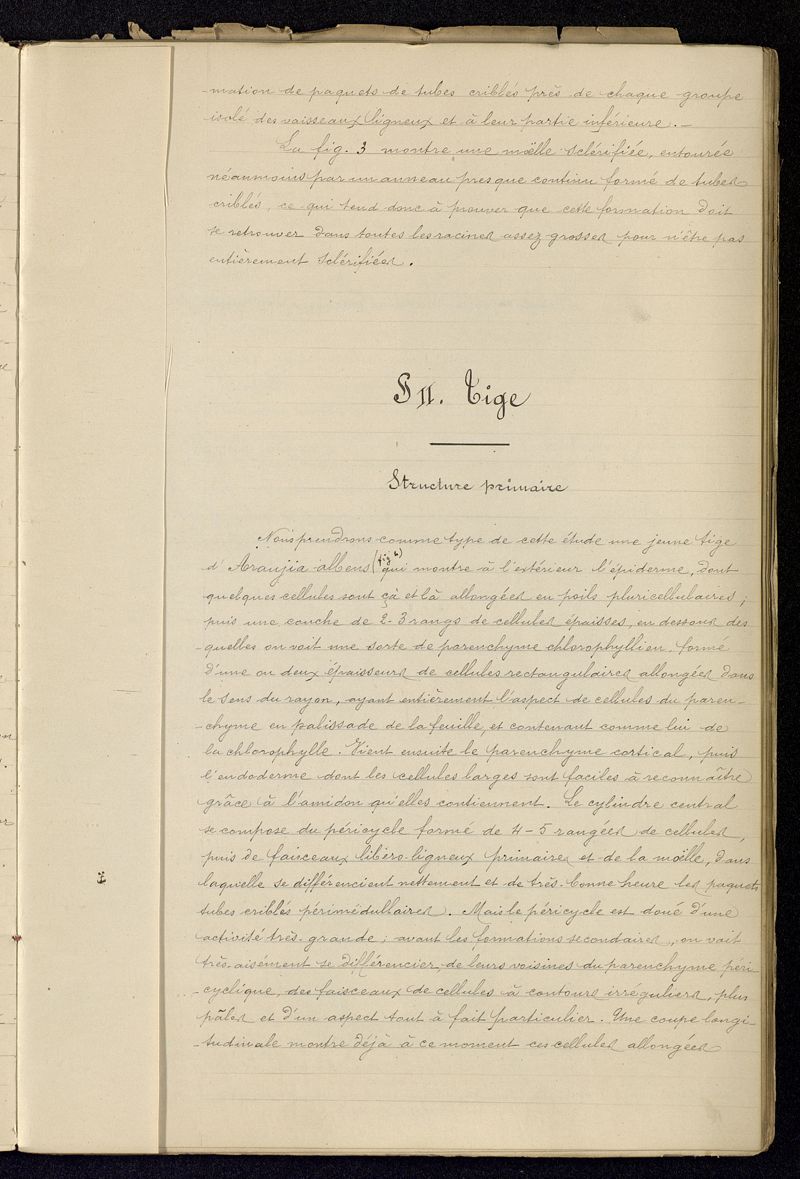 -mation de paquets de tubes criblés près de chaque groupe
isolé des vaisseaux ligneux et à leur partie inférieure. –
La fig. 3 montre une moëlle sclérifiée, entourée
néanmoins par un anneau presque continu formé de tubes
criblés, ce qui tend donc à prouver que cette formation doit
se retrouver dans toutes les racines assez grosses pour n'être pas
entièrement sclérifiées.
§ II. Tige
Structure primaire
Nous prendrons comme type de cette étude une jeune tige
d'Araujia albens (fig 4) qui montre à l'extérieur l'épiderme, dont
quelques cellules sont çà et là allongées en poils pluricellulaires;
puis une couche de 2-3 rangs de cellules épaisses, en dessous des
-quelles on voit une sorte de parenchyme chlorophyllien formé
d'une ou deux épaisseurs de cellules rectangulaires allongées dans
le sens du rayon, ayant entièrement l'aspect de cellules du paren-
-chyme en palissade de la feuille, et contenant comme lui de
la chlorophylle. Vient ensuite le parenchyme cortical, puis
l'endoderme dont les cellules larges sont faciles à reconnaître
grâce à l'amidon qu'elles contiennent. Le cylindre central
se compose du péricycle formé de 4-5 rangées de cellules,
puis de faisceaux libéro-ligneux primaires et de la moëlle, dans
laquelle se différencient nettement et de très bonne heure les paquets
tubes criblés périmédullaires. Mais le péricycle est doué d'une
activité très-grande; avant les formations secondaires, on voit
très-aisément se différencier, de leurs voisines du parenchyme péri-
-cyclique, des faisceaux de cellules à contours irréguliers, plus
pâles et d'un aspect tout à fait particulier. Une coupe longi-
-tudinale montre déjà à ce moment ces cellules allongées